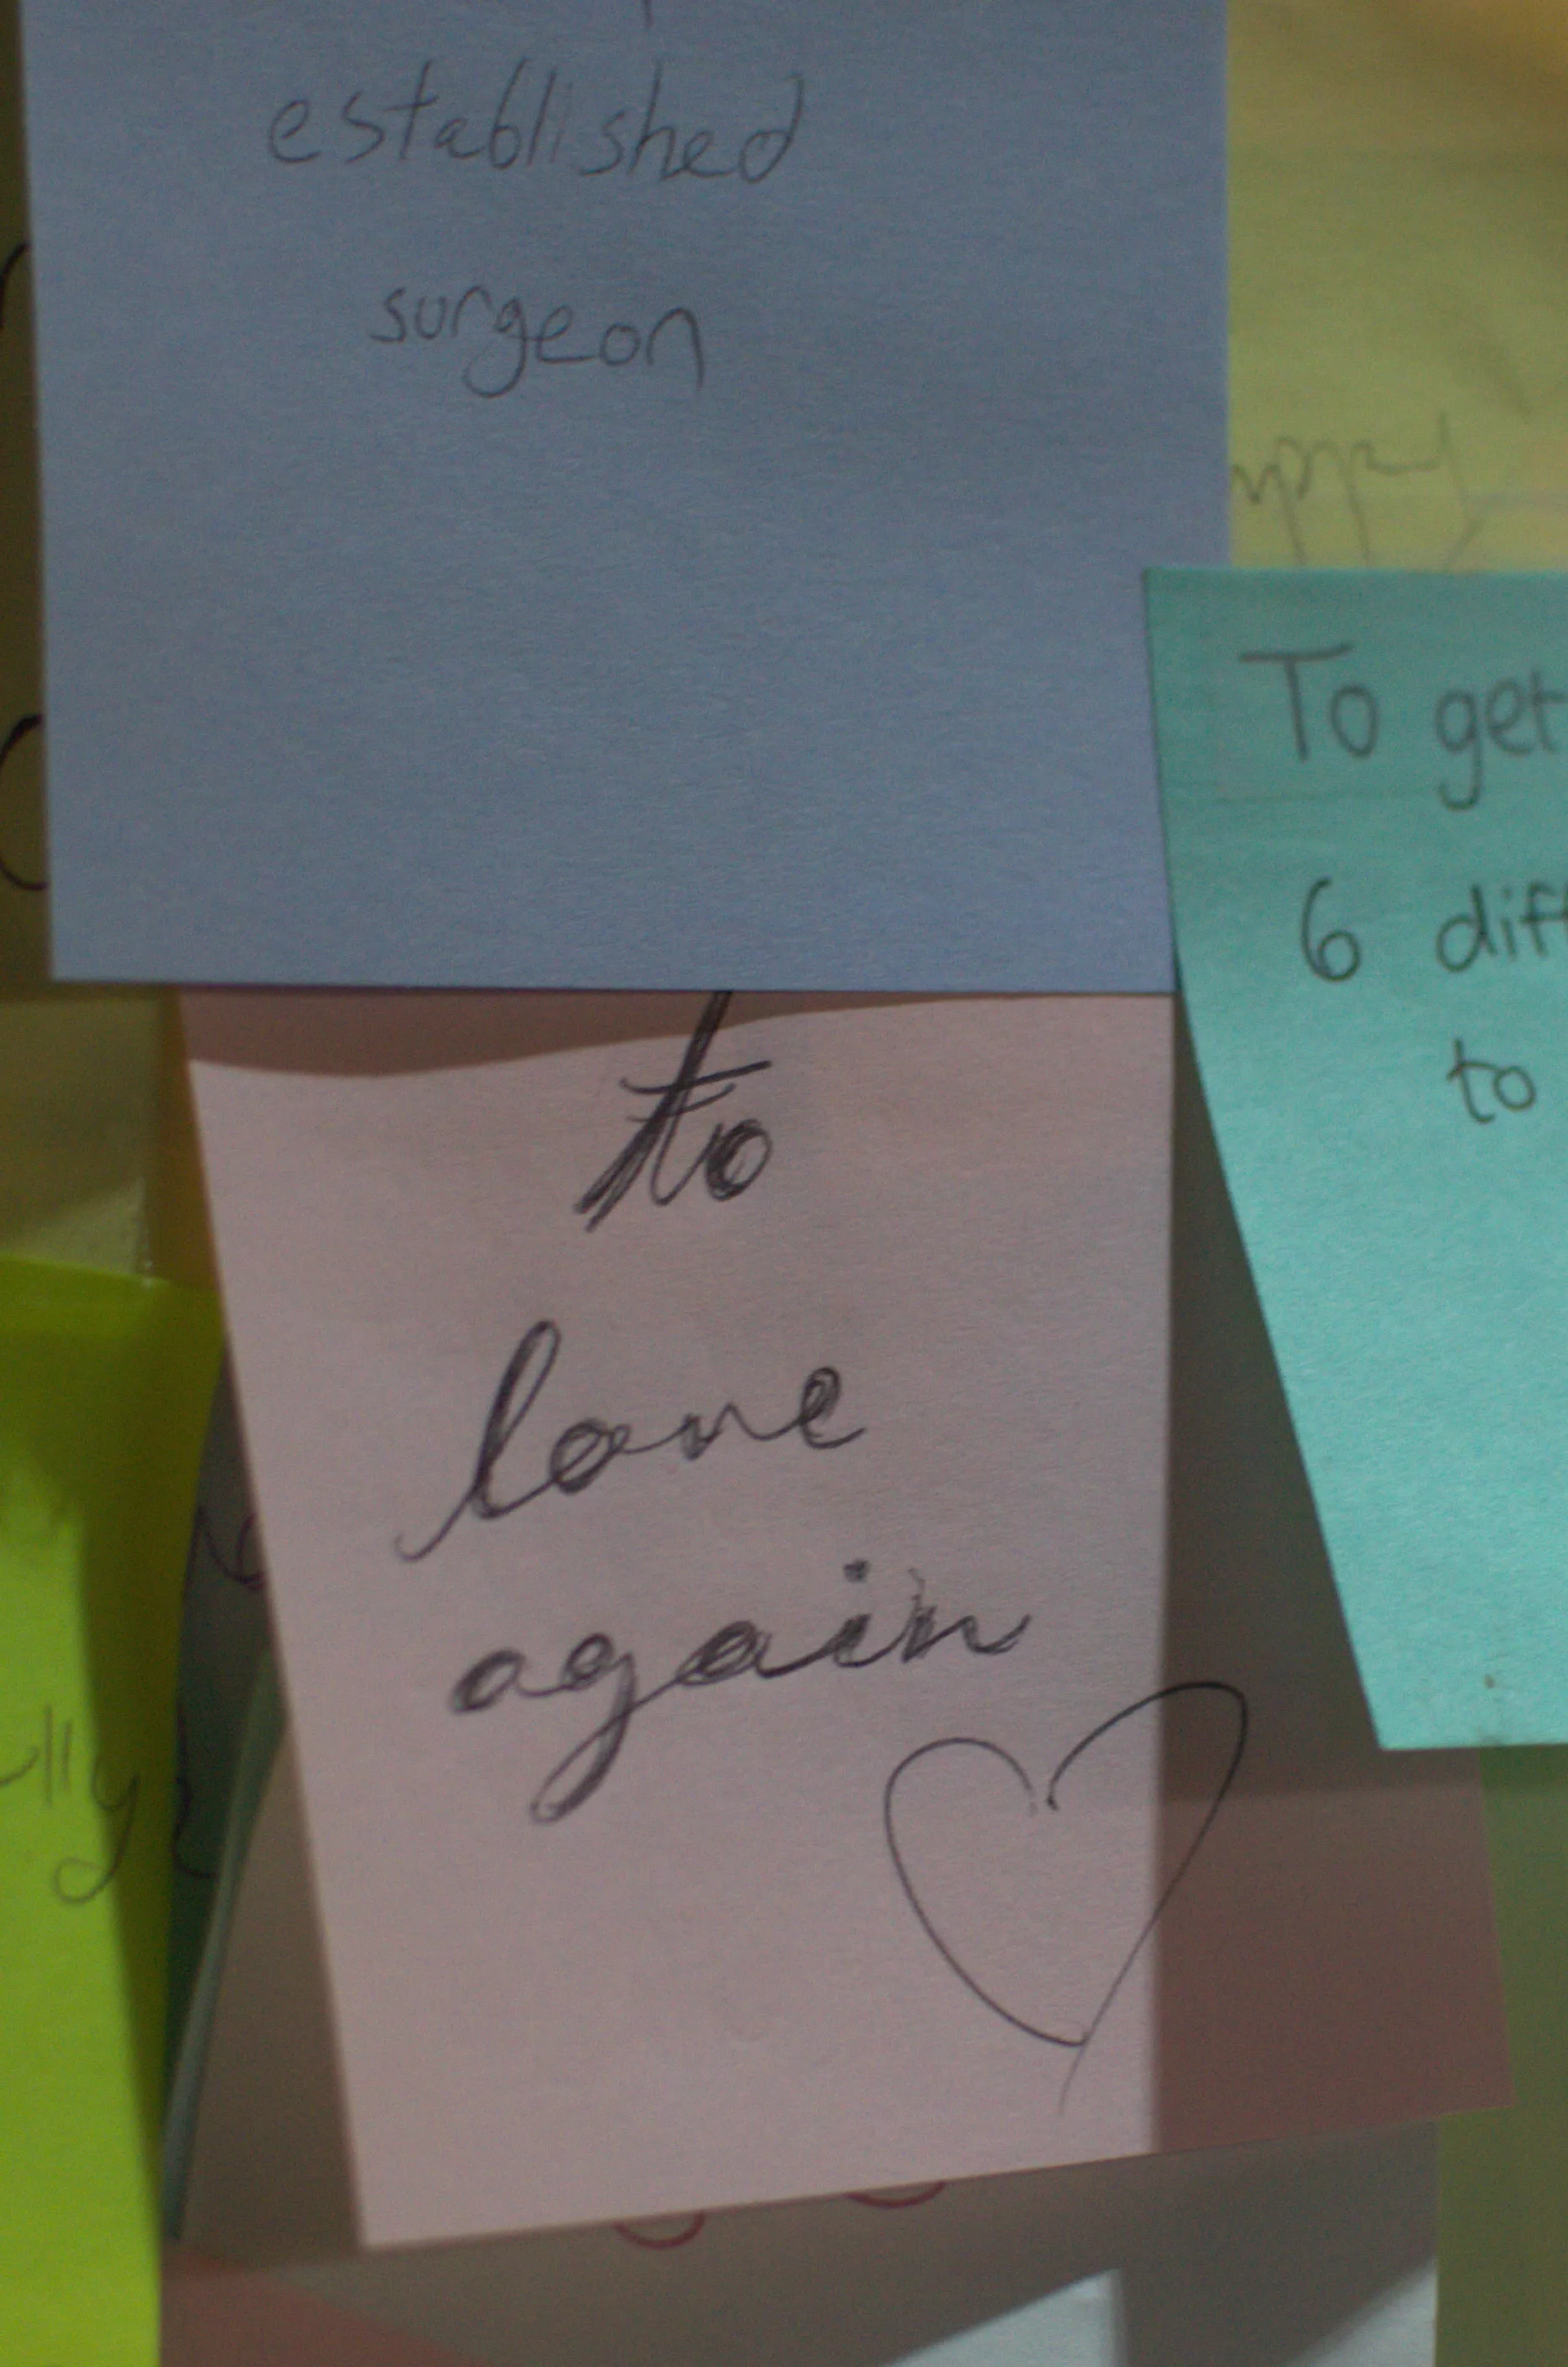 established
surgeon
To get
6 diff
to
to
love
again